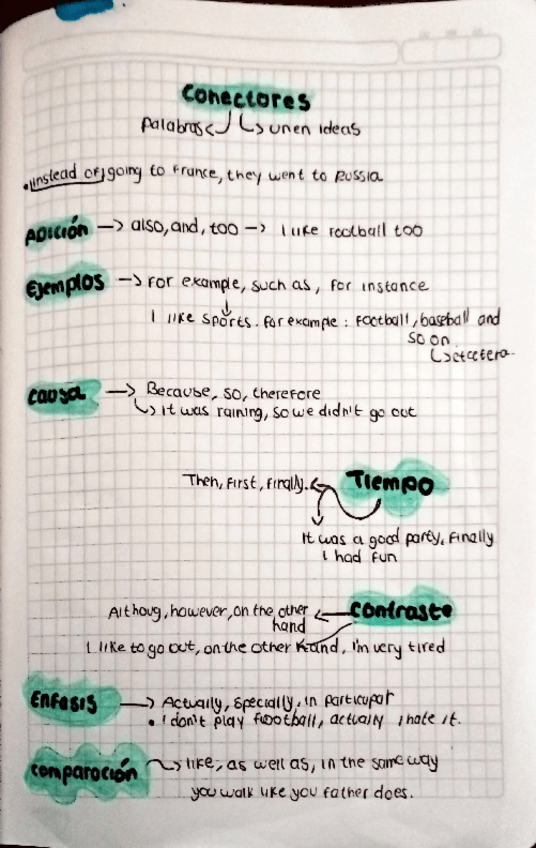 Conectores
Palabras unen ideas
• instead of, going to France, they went to Russia
Adición → also, and, too → I like football too
Ejemplos → For example, such as, for instance
I like sports. for example: football, baseball and
so on
etcetera
Causa → Because, so, therefore
it was raining, so we didn't go out
Then, first, finally. Tiempo
It was a good party, finally
I had fun
Althoug, however, on the other Contraste
hand
I like to go out, on the other hand, I'm very tired
Enfasis → Actually, specially, in particupar
• I don't play football, actually I hate it.
Comparación like, as well as, in the same way
you walk like you father does.